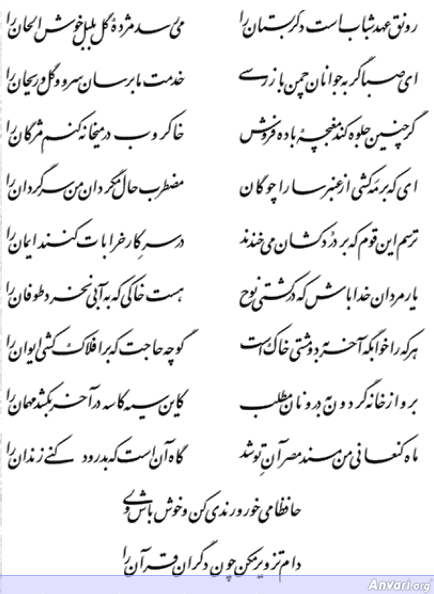 رونق عهد شباب است دگر بستان را می‌رسد مژدهٔ گل بلبل خوش الحان را
ای صبا گر به جوانان چمن باز رسی خدمت ما برسان سرو و گل و ریحان را
گر چنین جلوه کند مغبچهٔ باده فروش خاکروب در میخانه کنم مژگان را
ای که بر مه کشی از عنبر سارا چوگان مضطرب حال مگردان من سرگردان را
ترسم این قوم که بر دردکشان می‌خندند در سر کار خرابات کنند ایمان را
یار مردان خدا باش که در کشتی نوح هست خاکی که به آبی نخرد طوفان را
هر که را خوابگه آخر به دو مشتی خاک است گو چه حاجت که بر افلاک کشی ایوان را
برو از خانه گردون به در و نان مطلب کاین سیه کاسه در آخر بکشد مهمان را
ماه کنعانی من مسند مصر آن تو شد گاه آن است که بدرود کنی زندان را
حافظا می خور و رندی کن و خوش باش ولی
دام تزویر مکن چون دگران قرآن را
Anvari.org